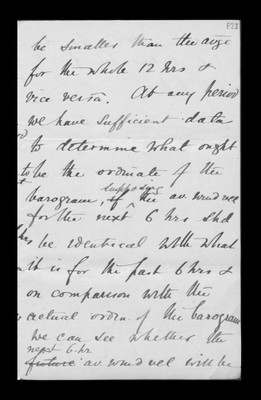 be smaller than the avge
for the whole 12 hrs &
vice versa. At any period
we have sufficient data
to determine what ought
to be the ordinate of the
barogram, if supposing the av. wind vel
for the next 6 hrs shd
be identical with what
it is for the past 6 hrs &
on comparison with the
actual ordin. of the barogram
we can see whether the
next 6 hr
future av. wind vel will be